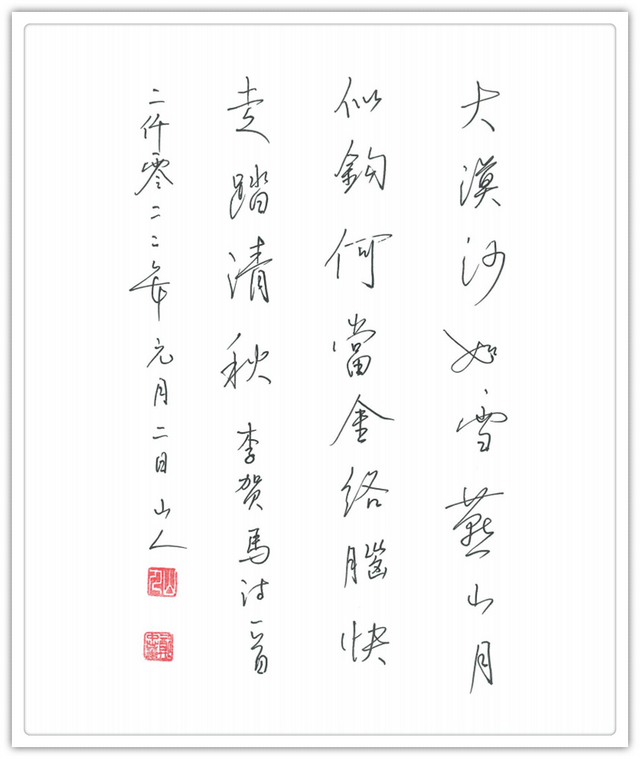 大漠沙如雪燕山月
似鈎何當金络腦快
走踏清秋 李贺马诗一首
二仟零二二年元月二日山人